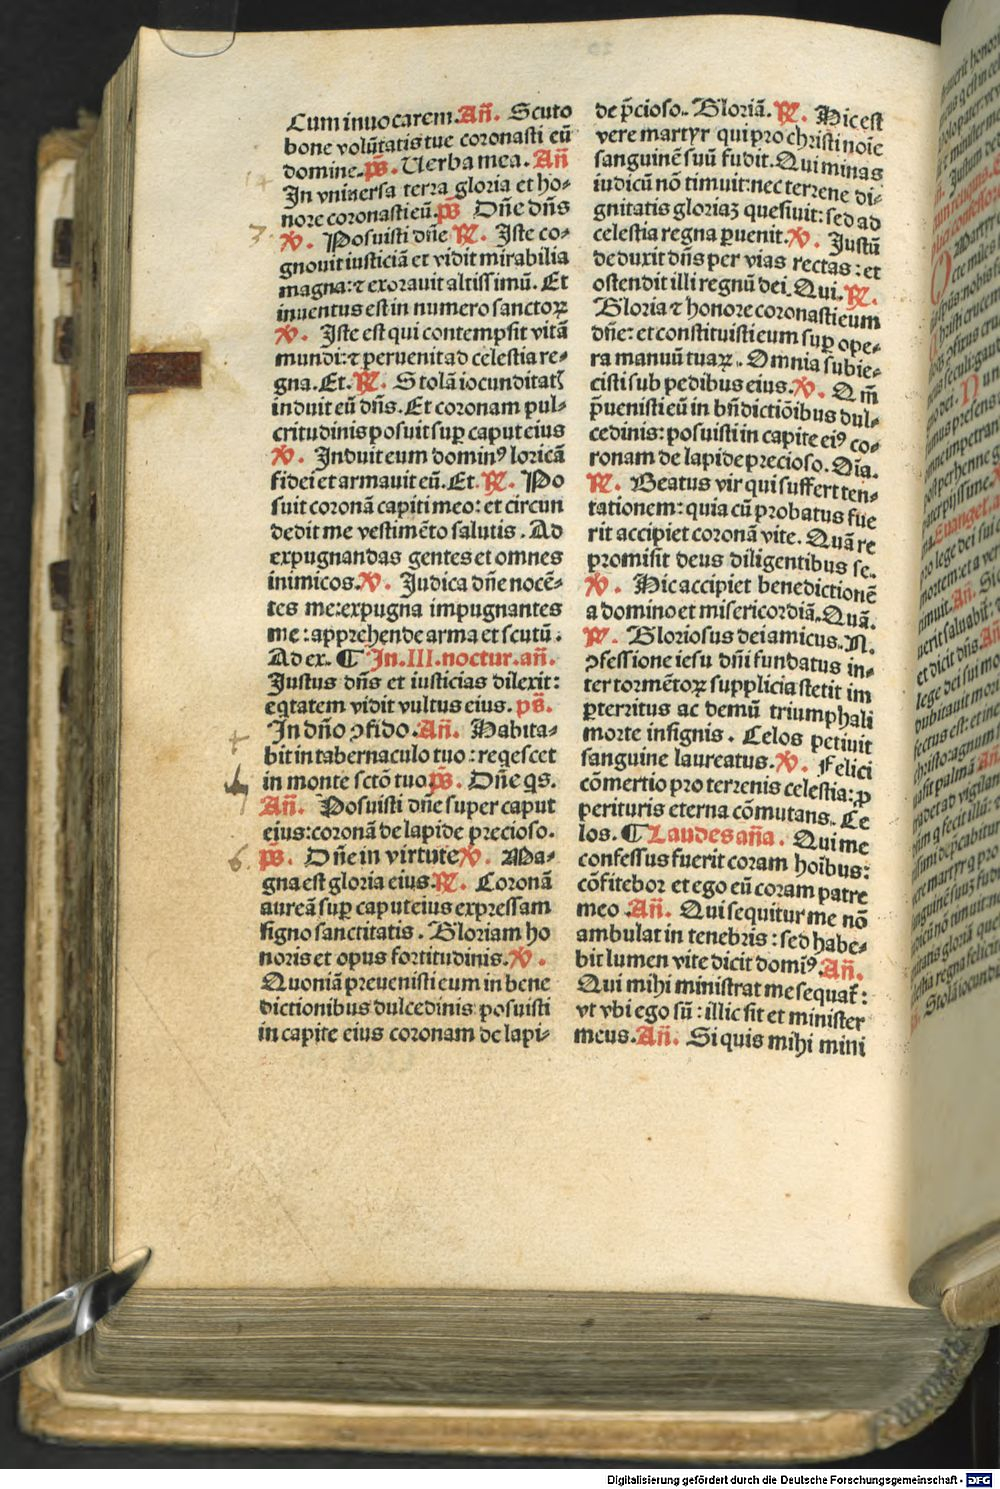 Cum inuocarem. Añ. Scuto
bone volūtatis tue coronasti eū
domine. pš. Uerba mea. Añ
In vniuersa terra gloria et ho-
nore coronasti eū. pš Dñe dñs
℣. Posuisti dñe ℟. Iste co-
gnouit iusticiā et vidit mirabilia
magna: ⁊ exorauit altissimū. Et
inuentus est in numero sanctoꝝ
℣. Iste est qui contempsit vitā
mundi: ⁊ peruenit ad celestia re-
gna. Et. ℟. Stolā iocunditatꝭ
induit eū dñs. Et coronam pul-
critudinis posuit suꝑ caput eius
℣. Induit eum dominꝰ loricā
fidei et armauit eū. Et. ℟. Po
suit coronā capiti meo: et circun
dedit me vestimēto salutis. Ad
expugnandas gentes et omnes
inimicos. ℣. Judica dñe nocē-
tes me: expugna impugnantes
me: apprehende arma et scutū.
Ad ex. ¶ In. III. noctur. añ.
Justus dñs et iusticias dilexit:
eq̄tatem vidit vultus eius. pš.
In dño ꝯfido. Añ. Habita-
bit in tabernaculo tuo: reqescet
in monte sctō tuo pš. Dñe qs.
Añ. Posuisti dñe super caput
eius: coronā de lapide precioso.
pš. Dñe in virtute ℣. Ma-
gna est gloria eius. ℟. Coronā
aureā suꝑ caput eius expressam
signo sanctitatis. Gloriam ho
noris et opus fortitudinis. ℣.
Quoniā preuenisti eum in bene
dictionibus dulcedinis posuisti
in capite eius coronam de lapi-
de p̄cioso. Gloriā. ℟. Hic est
vere martyr qui pro christi noīe
sanguinē suū fudit. Qui minas
iudicū nō timuit: nec terrene di-
gnitatis gloriaꝫ quesiuit: sed ad
celestia regna ꝑuenit. ℣. Justū
deduxit dñs per vias rectas: et
ostendit illi regnū dei. Qui. ℟.
Gloria ⁊ honore coronasti eum
dñe: et constituisti eum suꝑ ope-
ra manuū tuaꝝ. Omnia subie-
cisti sub pedibus eius. ℣. Qm̄
p̄uenisti eū in bñdictiōibus dul-
cedinis: posuisti in capite eiꝰ co-
ronam de lapide precioso. Oīa.
℟. Beatus vir qui suffert ten-
tationem: quia cū probatus fue
rit accipiet coronā vite. Quā re
promisit deus diligentibus se.
℣. Hic accipiet benedictionē
a domino et misericordiā. Quā.
℟. Gloriosus dei amicus. N.
ꝯfessione iesu dñi fundatus in-
ter tormētoꝝ supplicia stetit im
ꝑterritus ac demū triumphali
morte insignis. Celos petiuit
sanguine laureatus. ℣. Felici
cōmertio pro terrenis celestia: ꝓ
perituris eterna cōmutans. Ce
los. ¶ Laudes aña. Qui me
confessus fuerit coram hoībus:
cōfitebor et ego eū coram patre
meo. Añ. Qui sequitur me nō
ambulat in tenebris: sed habe-
bit lumen vite dicit domiꝰ. Añ.
Qui mihi ministrat me sequat̄:
vt vbi ego sū: illic sit et minister
meus. Añ. Si quis mihi mini
Digitalisierung gefördert durch die Deutsche Forschungsgemeinschaft - DFG